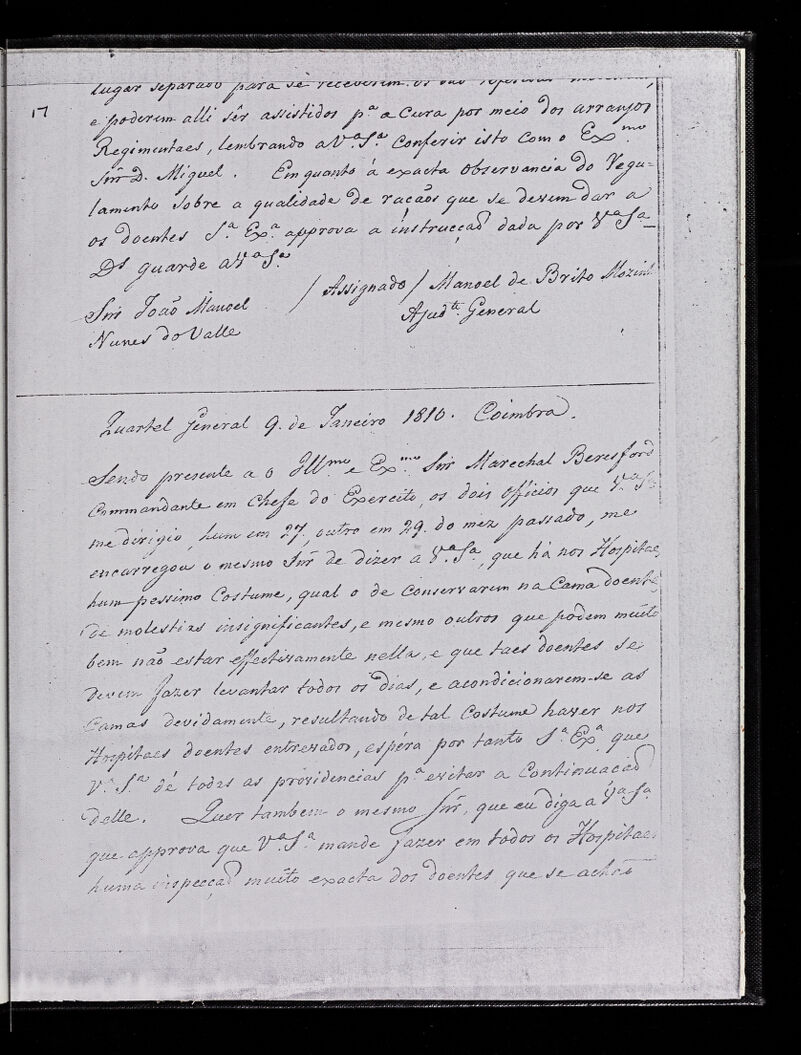 lugar separado para se receberem os
17
e poderem alli sêr assistidos p.ª a Cura por meio dos arranjos
Regimentaes, lembrando a V.ª S.ª Conferir isto com o Ex.mo
Snr D. Miguel. Em quanto á exacta observancia do Regu-
lamento sobre a qualidade de raçaõs que se devem dar a
os doentes S.ª Ex.ª approva a instrucçaõ dada por V.ª S.ª
D.s guarde a V.ª S.ª
/ Assignado / Manoel de Brito Mozinh
Snr João Manoel
Ajud.te General
Nunes do Valle
Quartel General 9. de Janeiro 1810. Coimbra.
Sendo presente a o Ill.mo e Ex.mo Snr Marechal Beresford
Commandante em Chefe do Exercito, os dois Officios que V.ª S.ª
me dirigio, hum em 27., outro em 29. do mez passado, me
encarregou o mesmo Snr de dizer a V.ª S.ª, que há nos Hospitae
hum pessimo Costume, qual o de Conservarem na Cama doente
de molestias insignificantes, e mesmo outros que podem muito
bem não estar effectivamente nella, e que taes doentes se
devem fazer levantar todos os dias, e acondicionarem-se as
Camas devidamente, resultando de tal Costume haver nos
Hospitaes doentes entrevados, espéra por tanto S.ª Ex.ª que
V.ª S.ª dê todas as providencias p.ª evitar a Continuaçaõ
delle. Quer tambem o mesmo Snr, que eu diga a V.ª S.ª
que approva que V.ª S.ª mande fazer em todos os Hospitae
huma inspecçaõ muito exacta dos doentes que se achão